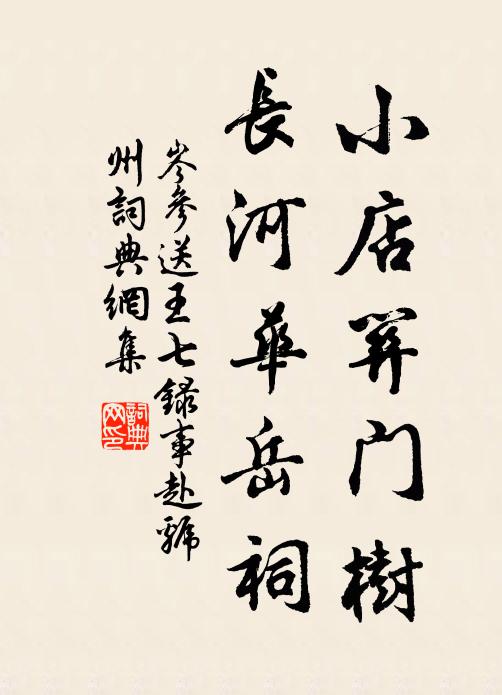 小店關門樹
長河華岳祠
岑參送王七錄事赴虢
州詞典網集
詞典
网印